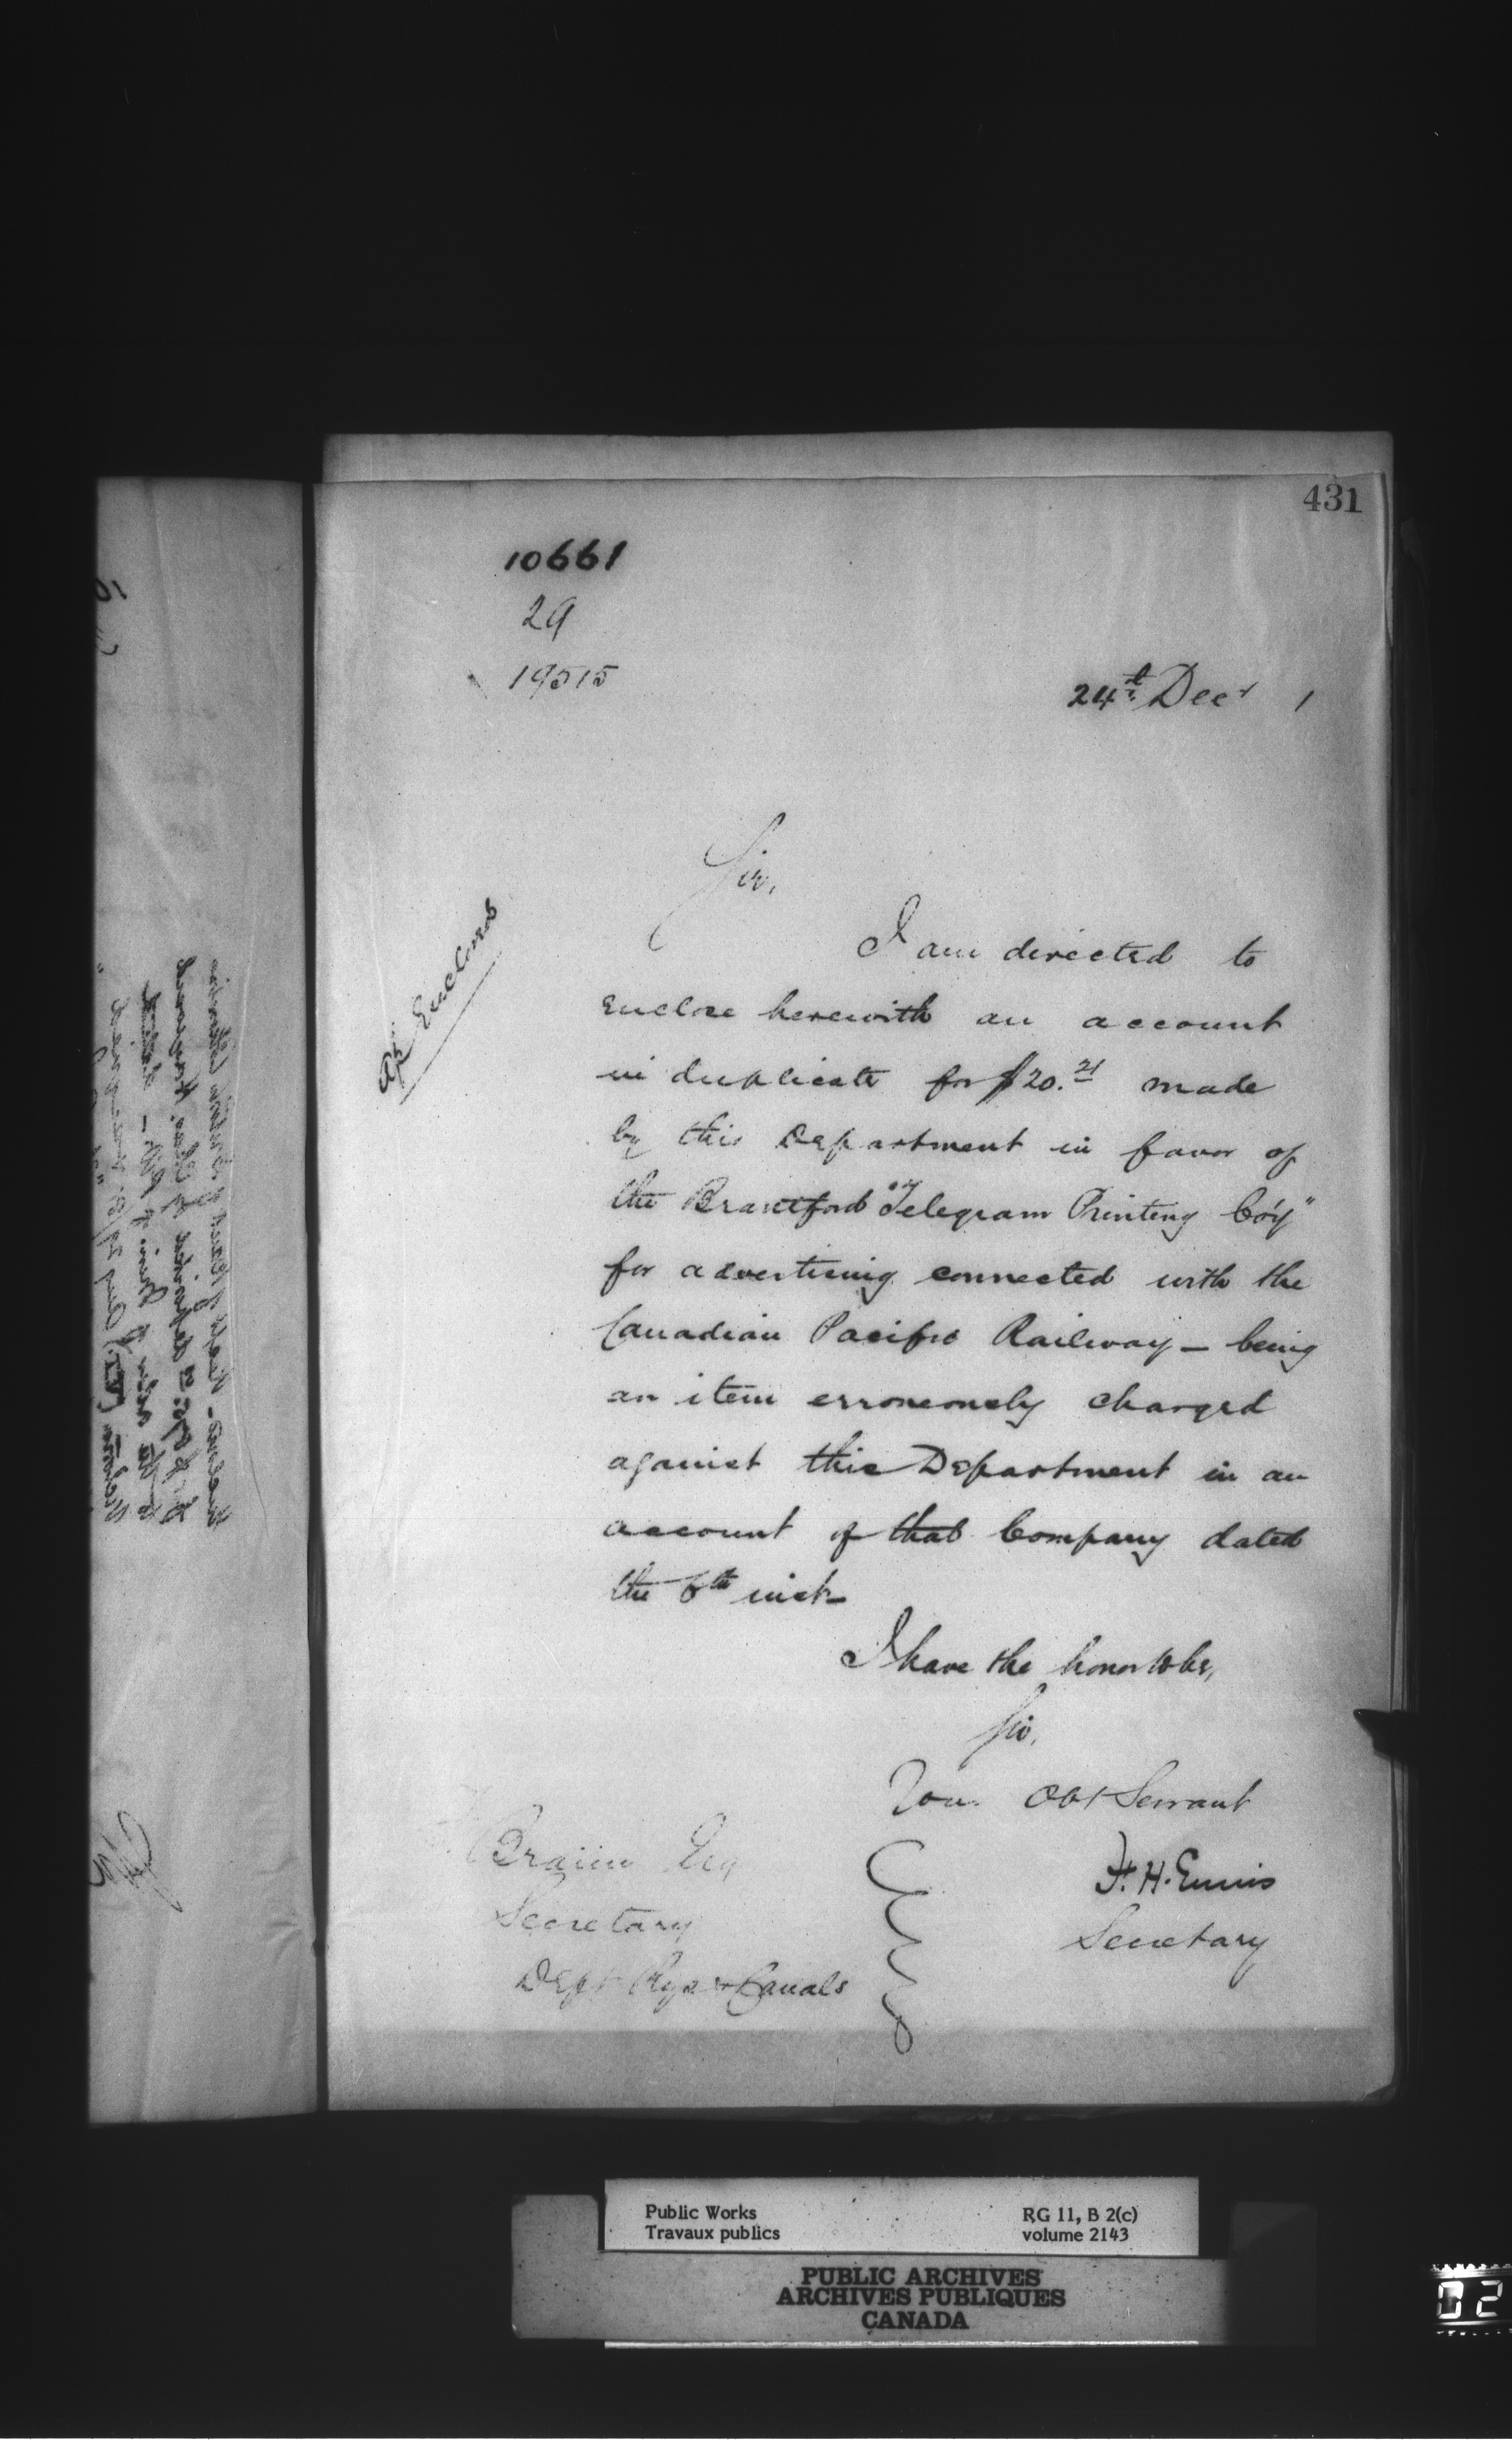 431
10661
29
19515
24th Decr 1
Sir,
Enclosed
I am directed to
enclose herewith an account
in duplicate for $20.21 made
by this Department in favor of
the Brantford "Telegram Printing Coy"
for advertising connected with the
Canadian Pacific Railway — being
an item erroneously charged
against this Department in an
account of that Company dated
the 6th inst.
I have the honor to be,
Sir,
Your Obt Servant
F. H. Ennis
Secretary
Braun Esq
Secretary
Dept Rys & Canals
Public Works
Travaux publics
RG 11, B 2(c)
volume 2143
PUBLIC ARCHIVES
ARCHIVES PUBLIQUES
CANADA
02